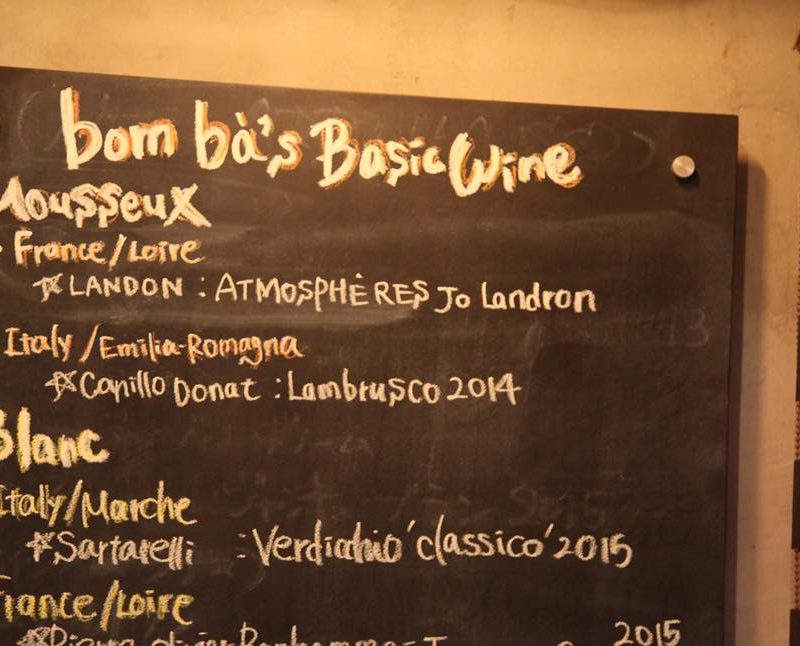 bom bà's Basic Wine
Mousseux
France/Loire
☆ LANDON : ATMOSPHÈRES Jo Landron
Italy/Emilia-Romagna
☆ Canillo Donat : Lambrusco 2014
Blanc
Italy/Marche
☆ Sartarelli : Verdichio 'classico' 2015
France/Loire
2015